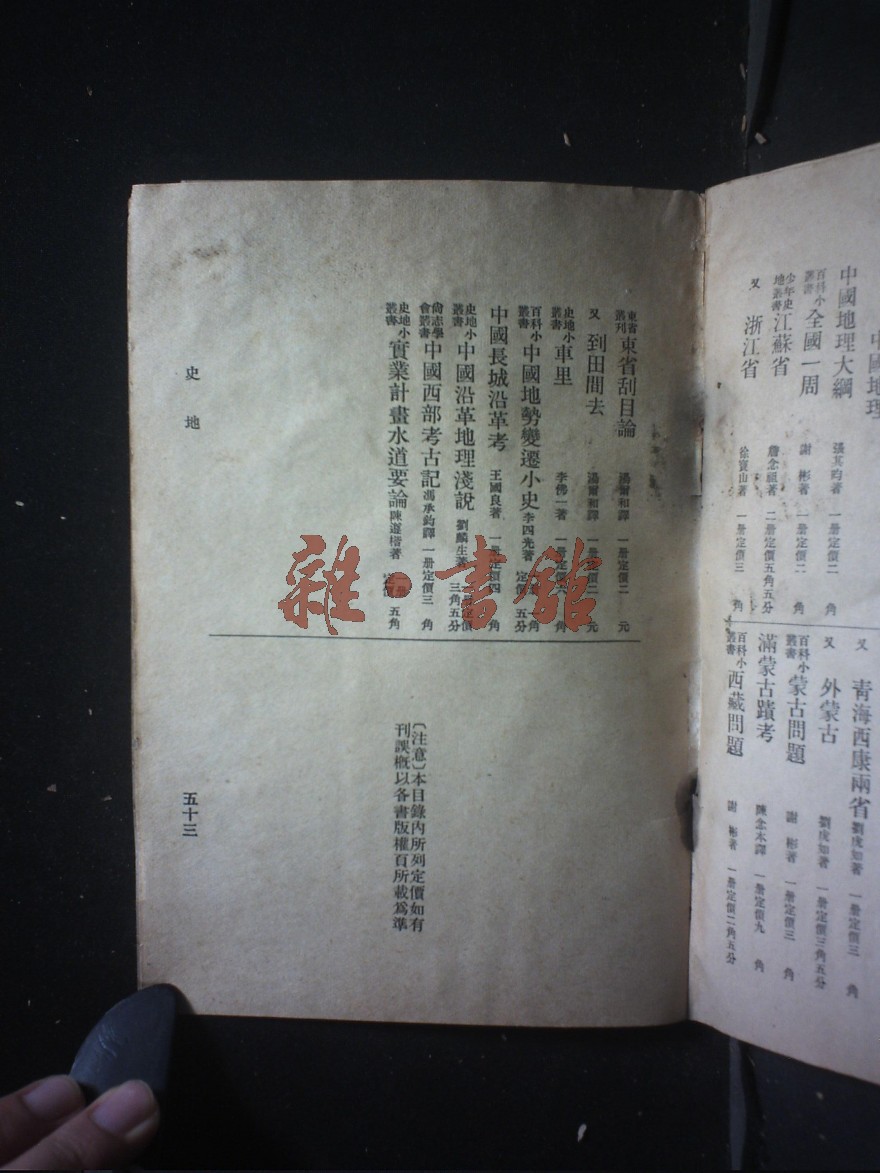 中國地理
中國地理大綱 張其昀著 一册定價二角
百科小叢書 全國一周 謝彬著 一册定價二角
少年史地叢書 江蘇省 詹念祖著 二册定價五角五分
又 浙江省 徐寶山著 一册定價三角
又 青海西康兩省 劉虎如著 一册定價三角
又 外蒙古 劉虎如著 一册定價三角五分
百科小叢書 蒙古問題 謝彬著 一册定價三角
滿蒙古蹟考 陳念本譯 一册定價九角
百科小叢書 西藏問題 謝彬著 一册定價二角五分
東省叢刊 東省刮目論 湯爾和譯 一册定價二元
又 到田間去 湯爾和譯 一册定價二元
史地小叢書 車里 李佛一著 一册定價六角
百科小叢書 中國地勢變遷小史 李四光著 定價一角五分
中國長城沿革考 王國良著 一册定價四角
史地小叢書 中國沿革地理淺說 劉麟生著 一册定價三角五分
尙志學會叢書 中國西部考古記 馮承鈞譯 一册定價三角
史地小叢書 實業計畫水道要論 陳遵楷著 一册定價五角
〔注意〕本目錄內所列定價如有
刊誤概以各書版權頁所載爲準
史地
五十三
雜·書館